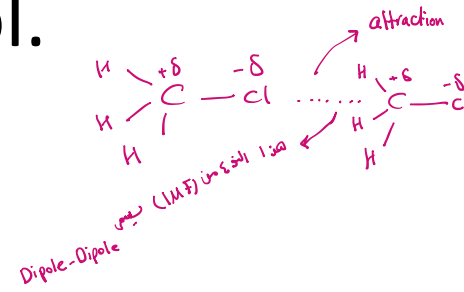 ol.
attraction
H +δ -δ H +δ -δ
C — Cl ...... C — C
H H
H H
هذا النوع من (IMF) يسمى
Dipole-Dipole